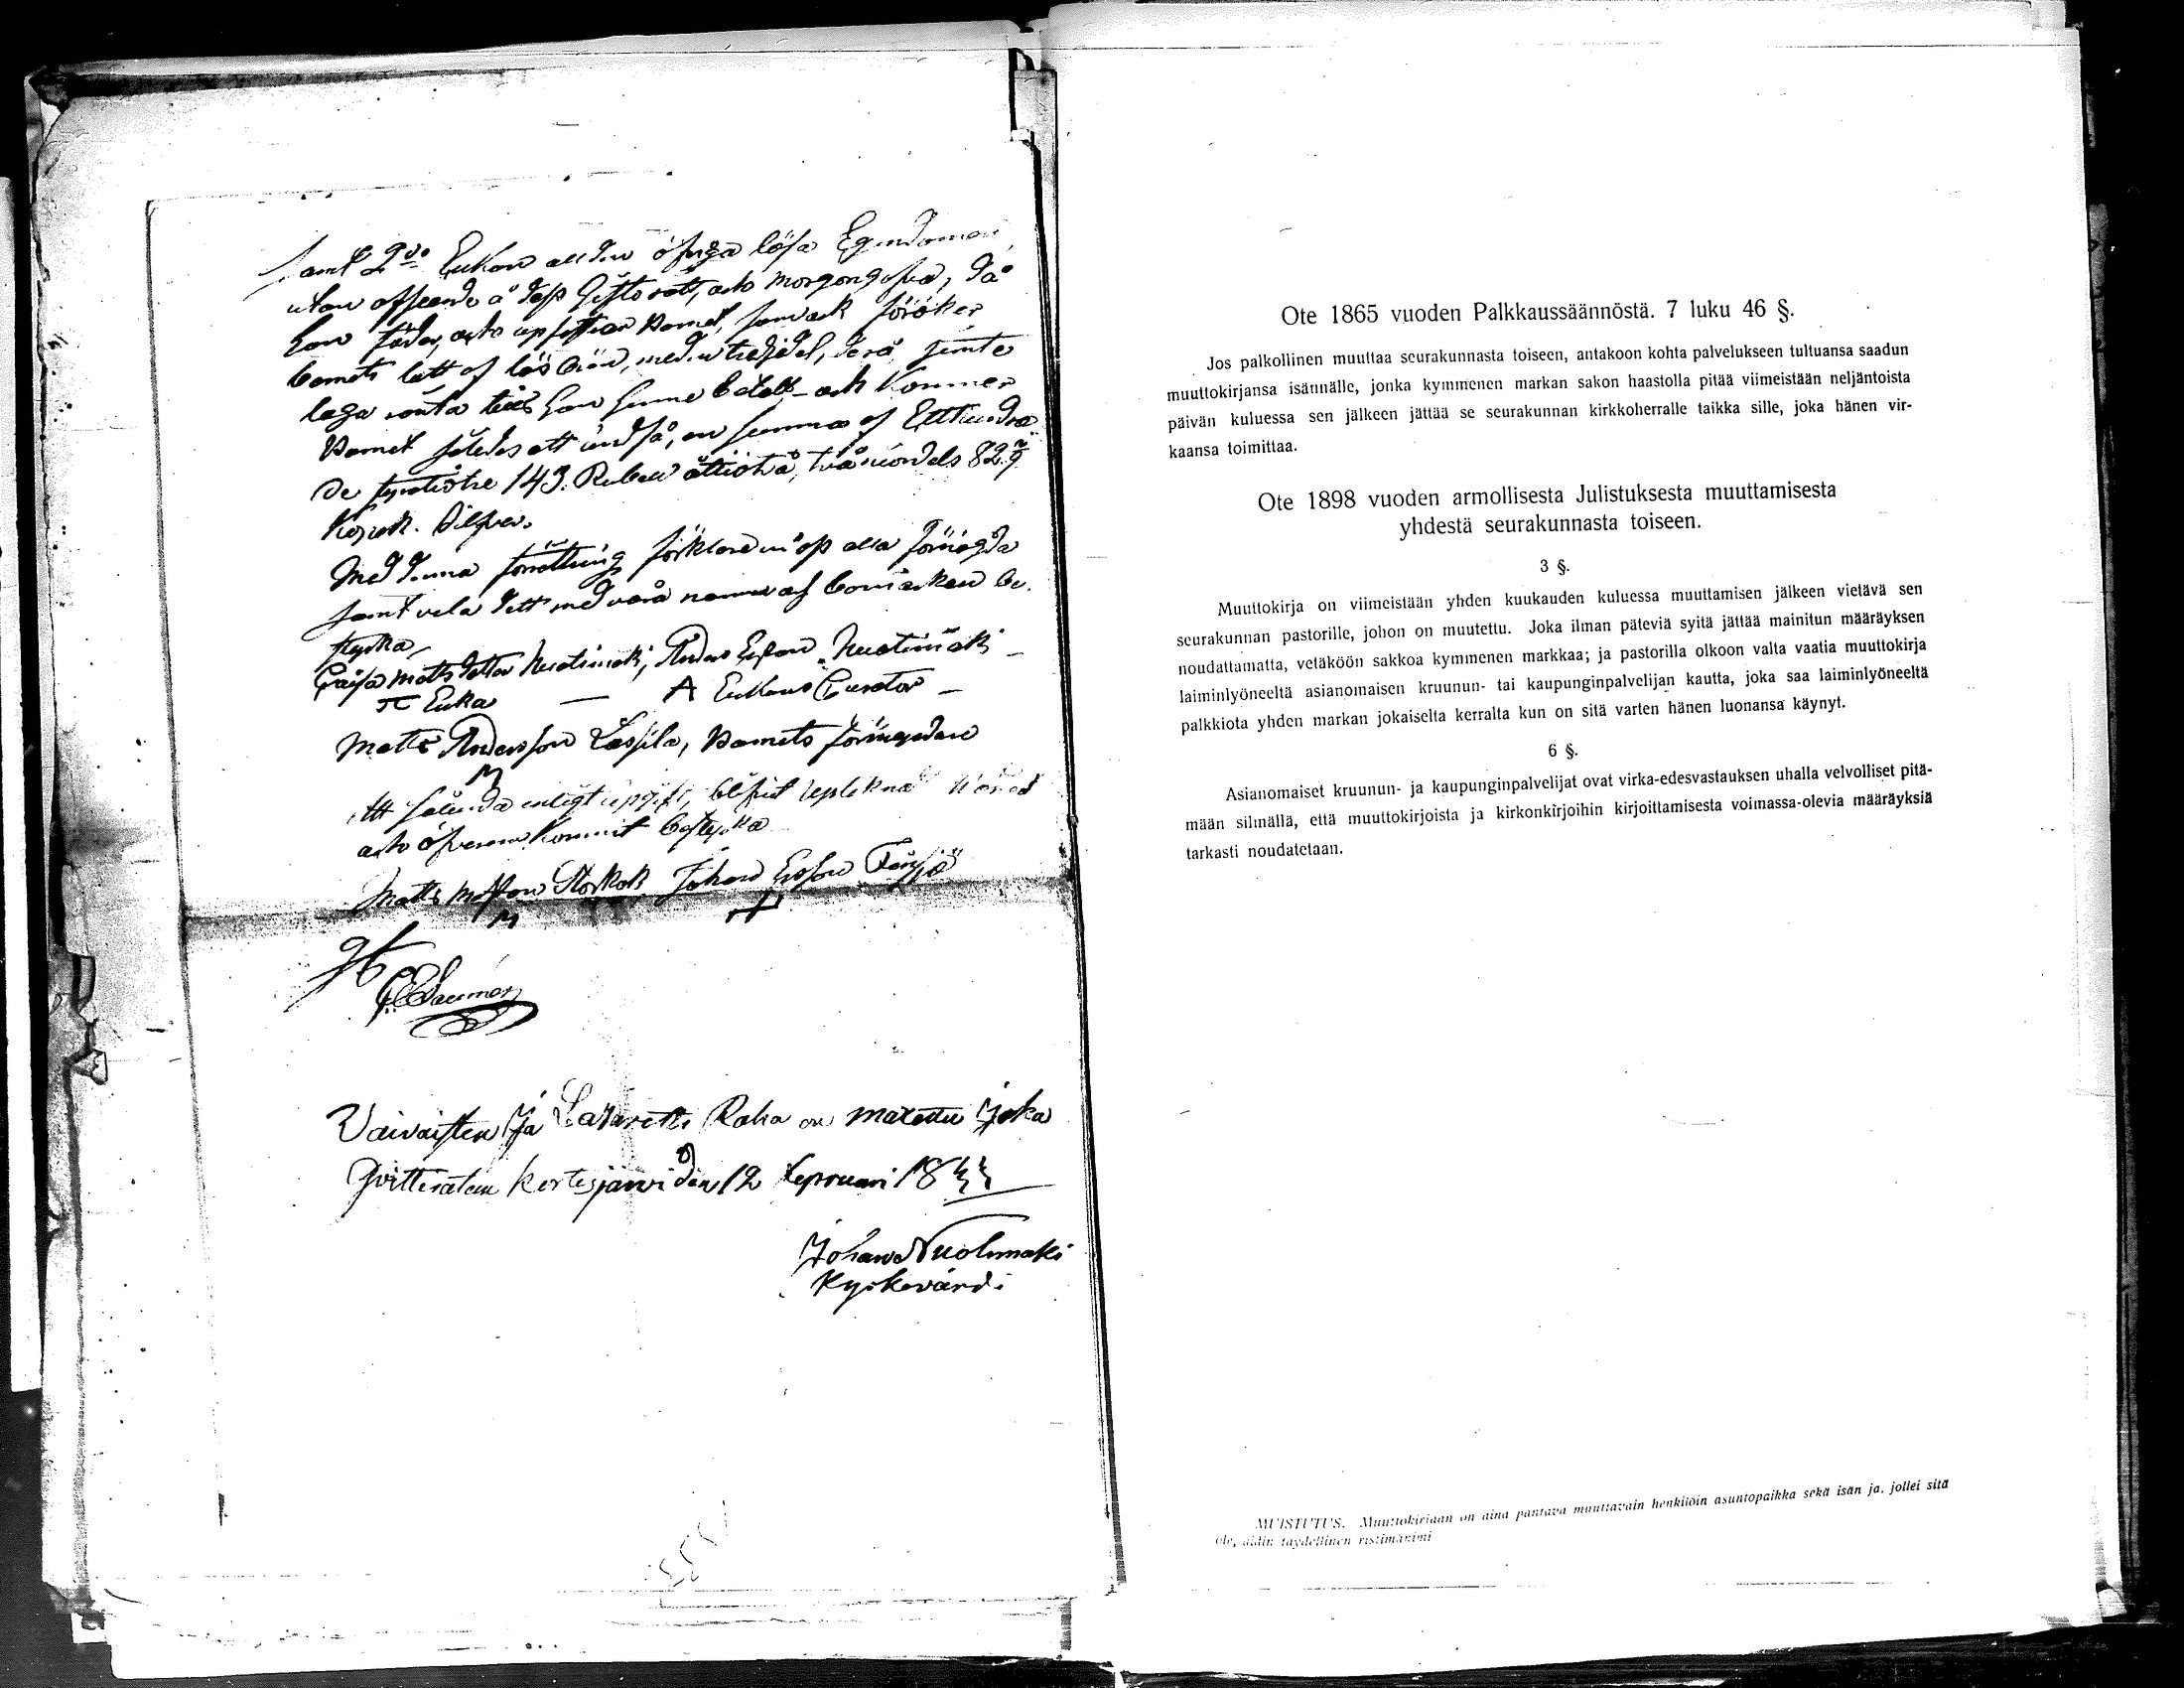 samt 2do Enkan all den öfriga lösa Egendomen,
utan afseende å dess Giftorätt, och morgongåfva, då
hon föder, och uppfostrar Barnet, som ock föröker
barnets lott af lös bön, med en tredjedel, derå jemte
laga ränta tills hon hinner betalt och Kommer
Barnet således att undfå, en summa af Etthundra
de fyratiotre 143. Rubel åttiotvå, två niondels 82 2/9
Kopek. Silfver.
Med denna förrättning förklarade vi oss alla förnögda
samt vela dett med våra namn och bomärken be-
styrka,
Caisa Mattsdotter Nuotimäki, Anders Ersson Nuotimäki
Enka — A Enkans Curator —
Matts Andersson Lassila, Barnets förmyndare
M
Att sålunda enligt uppgift, blifvit upteknad
och öfverens kommit bestyrka
Matts Mattson Storkok, Johan Ersson
M
Vaivaisten Ja Lazaretti Raha on maxettu Joka
Qvitteratan Kortesjärvi den 12 Fepruari 18
Johan Nuotimäki
Kyrkovärdi
Ote 1865 vuoden Palkkaussäännöstä. 7 luku 46 §.
Jos palkollinen muuttaa seurakunnasta toiseen, antakoon kohta palvelukseen tultuansa saadun
muuttokirjansa isännälle, jonka kymmenen markan sakon haastolla pitää viimeistään neljäntoista
päivän kuluessa sen jälkeen jättää se seurakunnan kirkkoherralle taikka sille, joka hänen vir-
kaansa toimittaa.
Ote 1898 vuoden armollisesta Julistuksesta muuttamisesta
yhdestä seurakunnasta toiseen.
3 §.
Muuttokirja on viimeistään yhden kuukauden kuluessa muuttamisen jälkeen vietävä sen
seurakunnan pastorille, johon on muutettu. Joka ilman päteviä syitä jättää mainitun määräyksen
noudattamatta, vetäköön sakkoa kymmenen markkaa; ja pastorilla olkoon valta vaatia muuttokirja
laiminlyöneeltä asianomaisen kruunun- tai kaupunginpalvelijan kautta, joka saa laiminlyöneeltä
palkkiota yhden markan jokaiselta kerralta kun on sitä varten hänen luonansa käynyt.
6 §.
Asianomaiset kruunun- ja kaupunginpalvelijat ovat virka-edesvastauksen uhalla velvolliset pitä-
mään silmällä, että muuttokirjoista ja kirkonkirjoihin kirjoittamisesta voimassa-olevia määräyksiä
tarkasti noudatetaan.
MUISTUTUS. Muuttokirjaan on aina pantava muuttavain henkilöin asuntopaikka sekä isän ja, jollei sitä
ole, äidin täydellinen ristimänimi